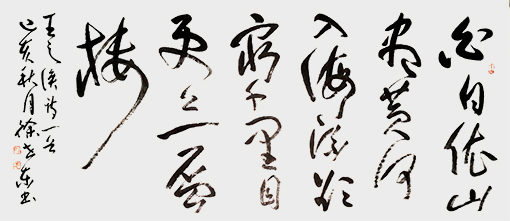 白日依山
尽黄河
入海流欲
穷千里目
更上一层
楼
王之涣诗一首
己亥秋月徐书